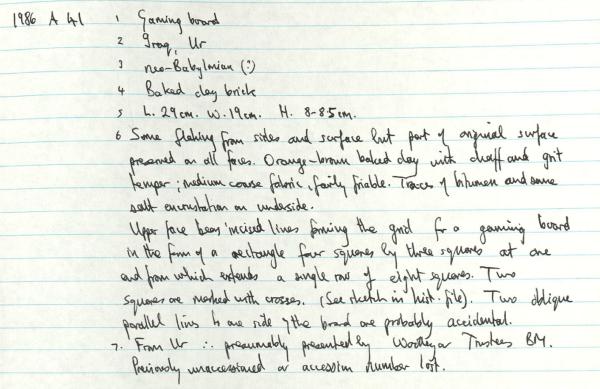 1986 A 41 1 Gaming board
2 Iraq, Ur
3 neo-Babylonian (?)
4 Baked clay brick
5 L. 29cm. W. 19cm. H. 8-8.5cm.
6 Some flaking from sides and surface but part of original surface
preserved on all faces. Orange-brown baked clay with chaff and grit
temper; medium coarse fabric, fairly friable. Traces of bitumen and some
salt encrustation on underside.
Upper face bears incised lines forming the grid for a gaming board
in the form of a rectangle four squares by three squares at one
end from which extends a single row of eight squares. Two
squares are marked with crosses. (See sketch in hist. file). Two oblique
parallel lines to one side of the board are probably accidental.
7. From Ur ∴ presumably presented by Woolley or Trustees BM.
Previously unaccessioned or accession number lost.